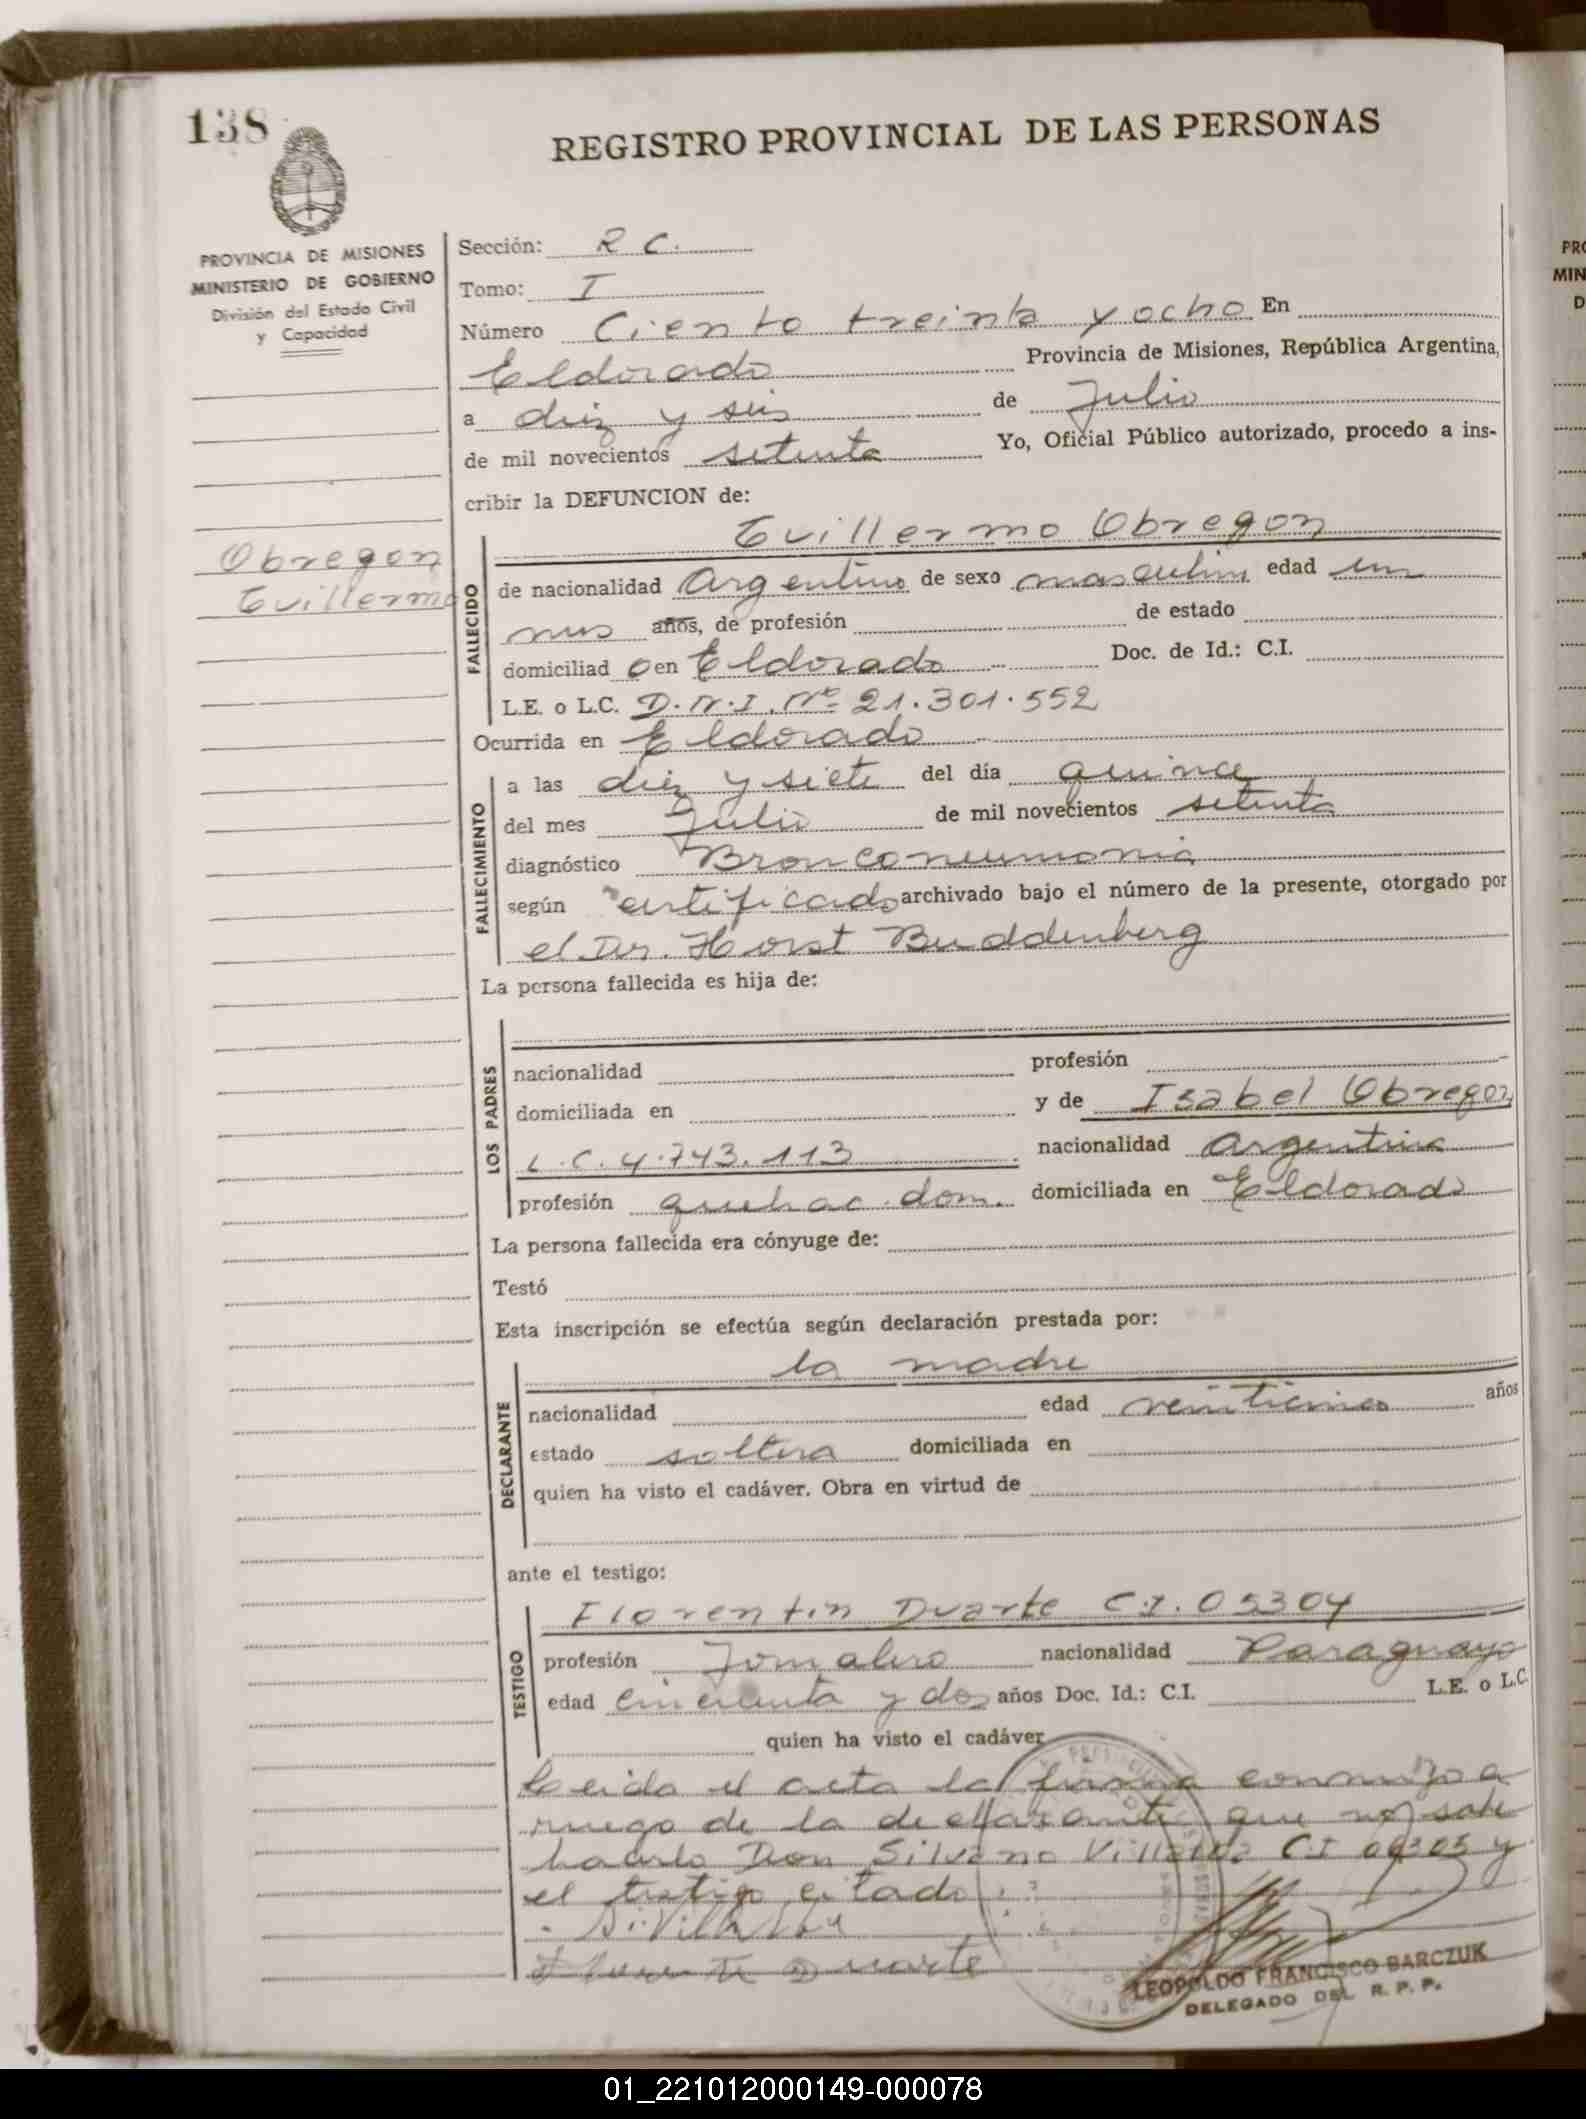 138
REGISTRO PROVINCIAL DE LAS PERSONAS
PROVINCIA DE MISIONES
MINISTERIO DE GOBIERNO
División del Estado Civil
y Capacidad
Sección: R C.
Tomo: I
Número Ciento treinta y ocho En
Eldorado Provincia de Misiones, República Argentina,
a diez y seis de Julio
de mil novecientos setenta Yo, Oficial Público autorizado, procedo a ins-
cribir la DEFUNCION de:
Obregon
Guillermo
Guillermo Obregon
FALLECIDO
de nacionalidad Argentino de sexo masculino edad un
mes años, de profesión de estado
domiciliad o en Eldorado Doc. de Id.: C.I.
L.E. o L.C. D.N.I. Nº 21.301.552
Ocurrida en Eldorado
FALLECIMIENTO
a las diez y siete del día quince
del mes Julio de mil novecientos setenta
diagnóstico Bronconeumonia
según certificado archivado bajo el número de la presente, otorgado por
el Dr. Horst Buddenberg
La persona fallecida es hija de:
LOS PADRES
nacionalidad profesión
domiciliada en y de Isabel Obregon
L.C. 4.743.113 nacionalidad Argentina
profesión quehac. dom. domiciliada en Eldorado
La persona fallecida era cónyuge de:
Testó
Esta inscripción se efectúa según declaración prestada por:
la madre
DECLARANTE
nacionalidad edad veinticinco años
estado soltera domiciliada en
quien ha visto el cadáver. Obra en virtud de
ante el testigo:
Florentin Duarte C.I. 05304
TESTIGO
profesión Jornalero nacionalidad Paraguayo
edad cincuenta y dos años Doc. Id.: C.I. L.E. o L.C.
quien ha visto el cadáver
Leida el acta la firma conmigo a
ruego de la declarante que no sabe
hacerlo Don Silvano Villalba CI y
el testigo citado
Duarte
LEOPOLDO FRANCISCO BARCZUK
DELEGADO DEL R. P. P.
01_221012000149-000078